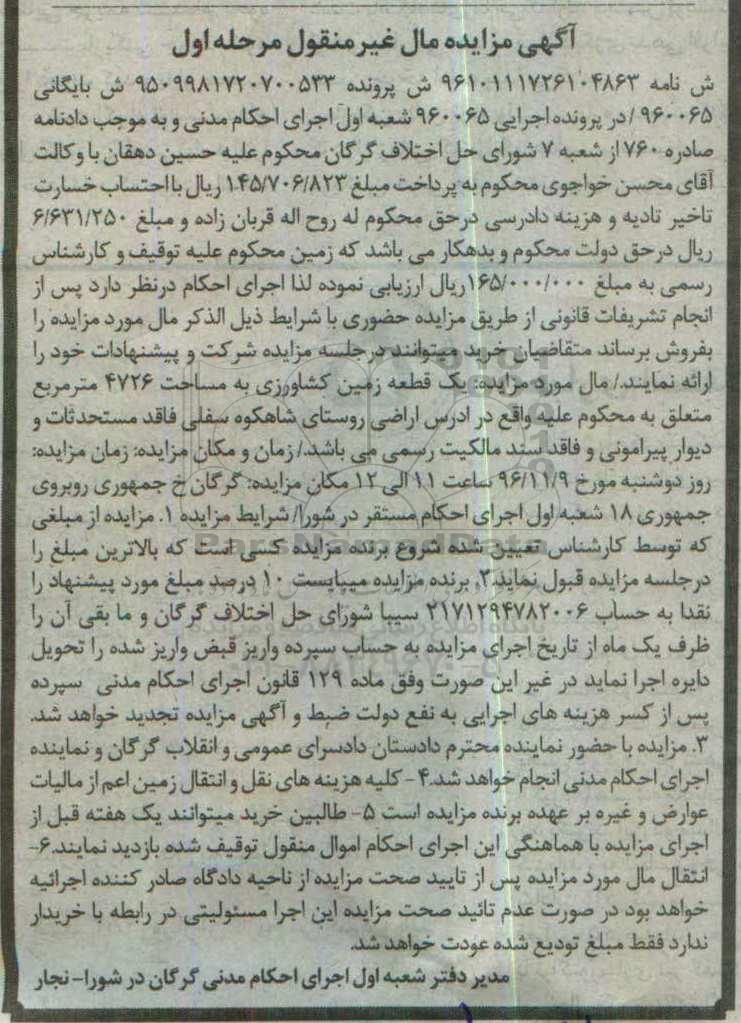 آگهی مزایده مال غیر منقول مرحله اول
ش نامه ۹۶۱۰۱۱۱۷۲۶۱۰۴۸۶۳ ش پرونده ۹۵۰۹۹۸۱۷۲۰۷۰۰۵۳۳ ش بایگانی
۹۶۰۰۶۵ / در پرونده اجرایی ۹۶۰۰۶۵ شعبه اول اجرای احکام مدنی و به موجب دادنامه
صادره ۷۶۰ از شعبه ۷ شورای حل اختلاف گرگان محکوم علیه حسین دهقان با وکالت
آقای محسن خواجوی محکوم به پرداخت مبلغ ۱۴۵/۷۰۶/۸۲۳ ریال با احتساب خسارت
تاخیر تادیه و هزینه دادرسی درحق محکوم له روح اله قربان زاده و مبلغ ۶/۶۳۱/۲۵۰
ریال درحق دولت محکوم و بدهکار می باشد که زمین محکوم علیه توقیف و کارشناس
رسمی به مبلغ ۱۶۵/۰۰۰/۰۰۰ریال ارزیابی نموده لذا اجرای احکام درنظر دارد پس از
انجام تشریفات قانونی از طریق مزایده حضوری با شرایط ذیل الذکر مال مورد مزایده را
بفروش برساند متقاضیان خرید میتوانند درجلسه مزایده شرکت و پیشنهادات خود را
ارائه نمایند./ مال مورد مزایده: یک قطعه زمین کشاورزی به مساحت ۴۷۲۶ مترمربع
متعلق به محکوم علیه واقع در ادرس اراضی روستای شاهکوه سفلی فاقد مستحدثات و
دیوار پیرامونی و فاقد سند مالکیت رسمی می باشد./ زمان و مکان مزایده: زمان مزایده:
روز دوشنبه مورخ ۹۶/۱۱/۹ ساعت ۱۱ الی ۱۲ مکان مزایده: گرگان خ جمهوری روبروی
جمهوری ۱۸ شعبه اول اجرای احکام مستقر در شورا/ شرایط مزایده ۱. مزایده از مبلغی
که توسط کارشناس تعیین شده شروع برنده مزایده کسی است که بالاترین مبلغ را
درجلسه مزایده قبول نماید.۲. برنده مزایده میبایست ۱۰ درصد مبلغ مورد پیشنهاد را
نقدا به حساب ۲۱۷۱۲۹۴۷۸۲۰۰۶ سیبا شورای حل اختلاف گرگان و ما بقی آن را
ظرف یک ماه از تاریخ اجرای مزایده به حساب سپرده واریز قبض واریز شده را تحویل
دایره اجرا نماید در غیر این صورت وفق ماده ۱۲۹ قانون اجرای احکام مدنی سپرده
پس از کسر هزینه های اجرایی به نفع دولت ضبط و آگهی مزایده تجدید خواهد شد.
۳. مزایده با حضور نماینده محترم دادستان دادسرای عمومی و انقلاب گرگان و نماینده
اجرای احکام مدنی انجام خواهد شد.۴- کلیه هزینه های نقل و انتقال زمین اعم از مالیات
عوارض و غیره بر عهده برنده مزایده است ۵- طالبین خرید میتوانند یک هفته قبل از
اجرای مزایده با هماهنگی این اجرای احکام اموال منقول توقیف شده بازدید نمایند.۶-
انتقال مال مورد مزایده پس از تایید صحت مزایده از ناحیه دادگاه صادر کننده اجرائیه
خواهد بود در صورت عدم تائید صحت مزایده این اجرا مسئولیتی در رابطه با خریدار
ندارد فقط مبلغ تودیع شده عودت خواهد شد.
مدیر دفتر شعبه اول اجرای احکام مدنی گرگان در شورا- نجار
ParsNamadData